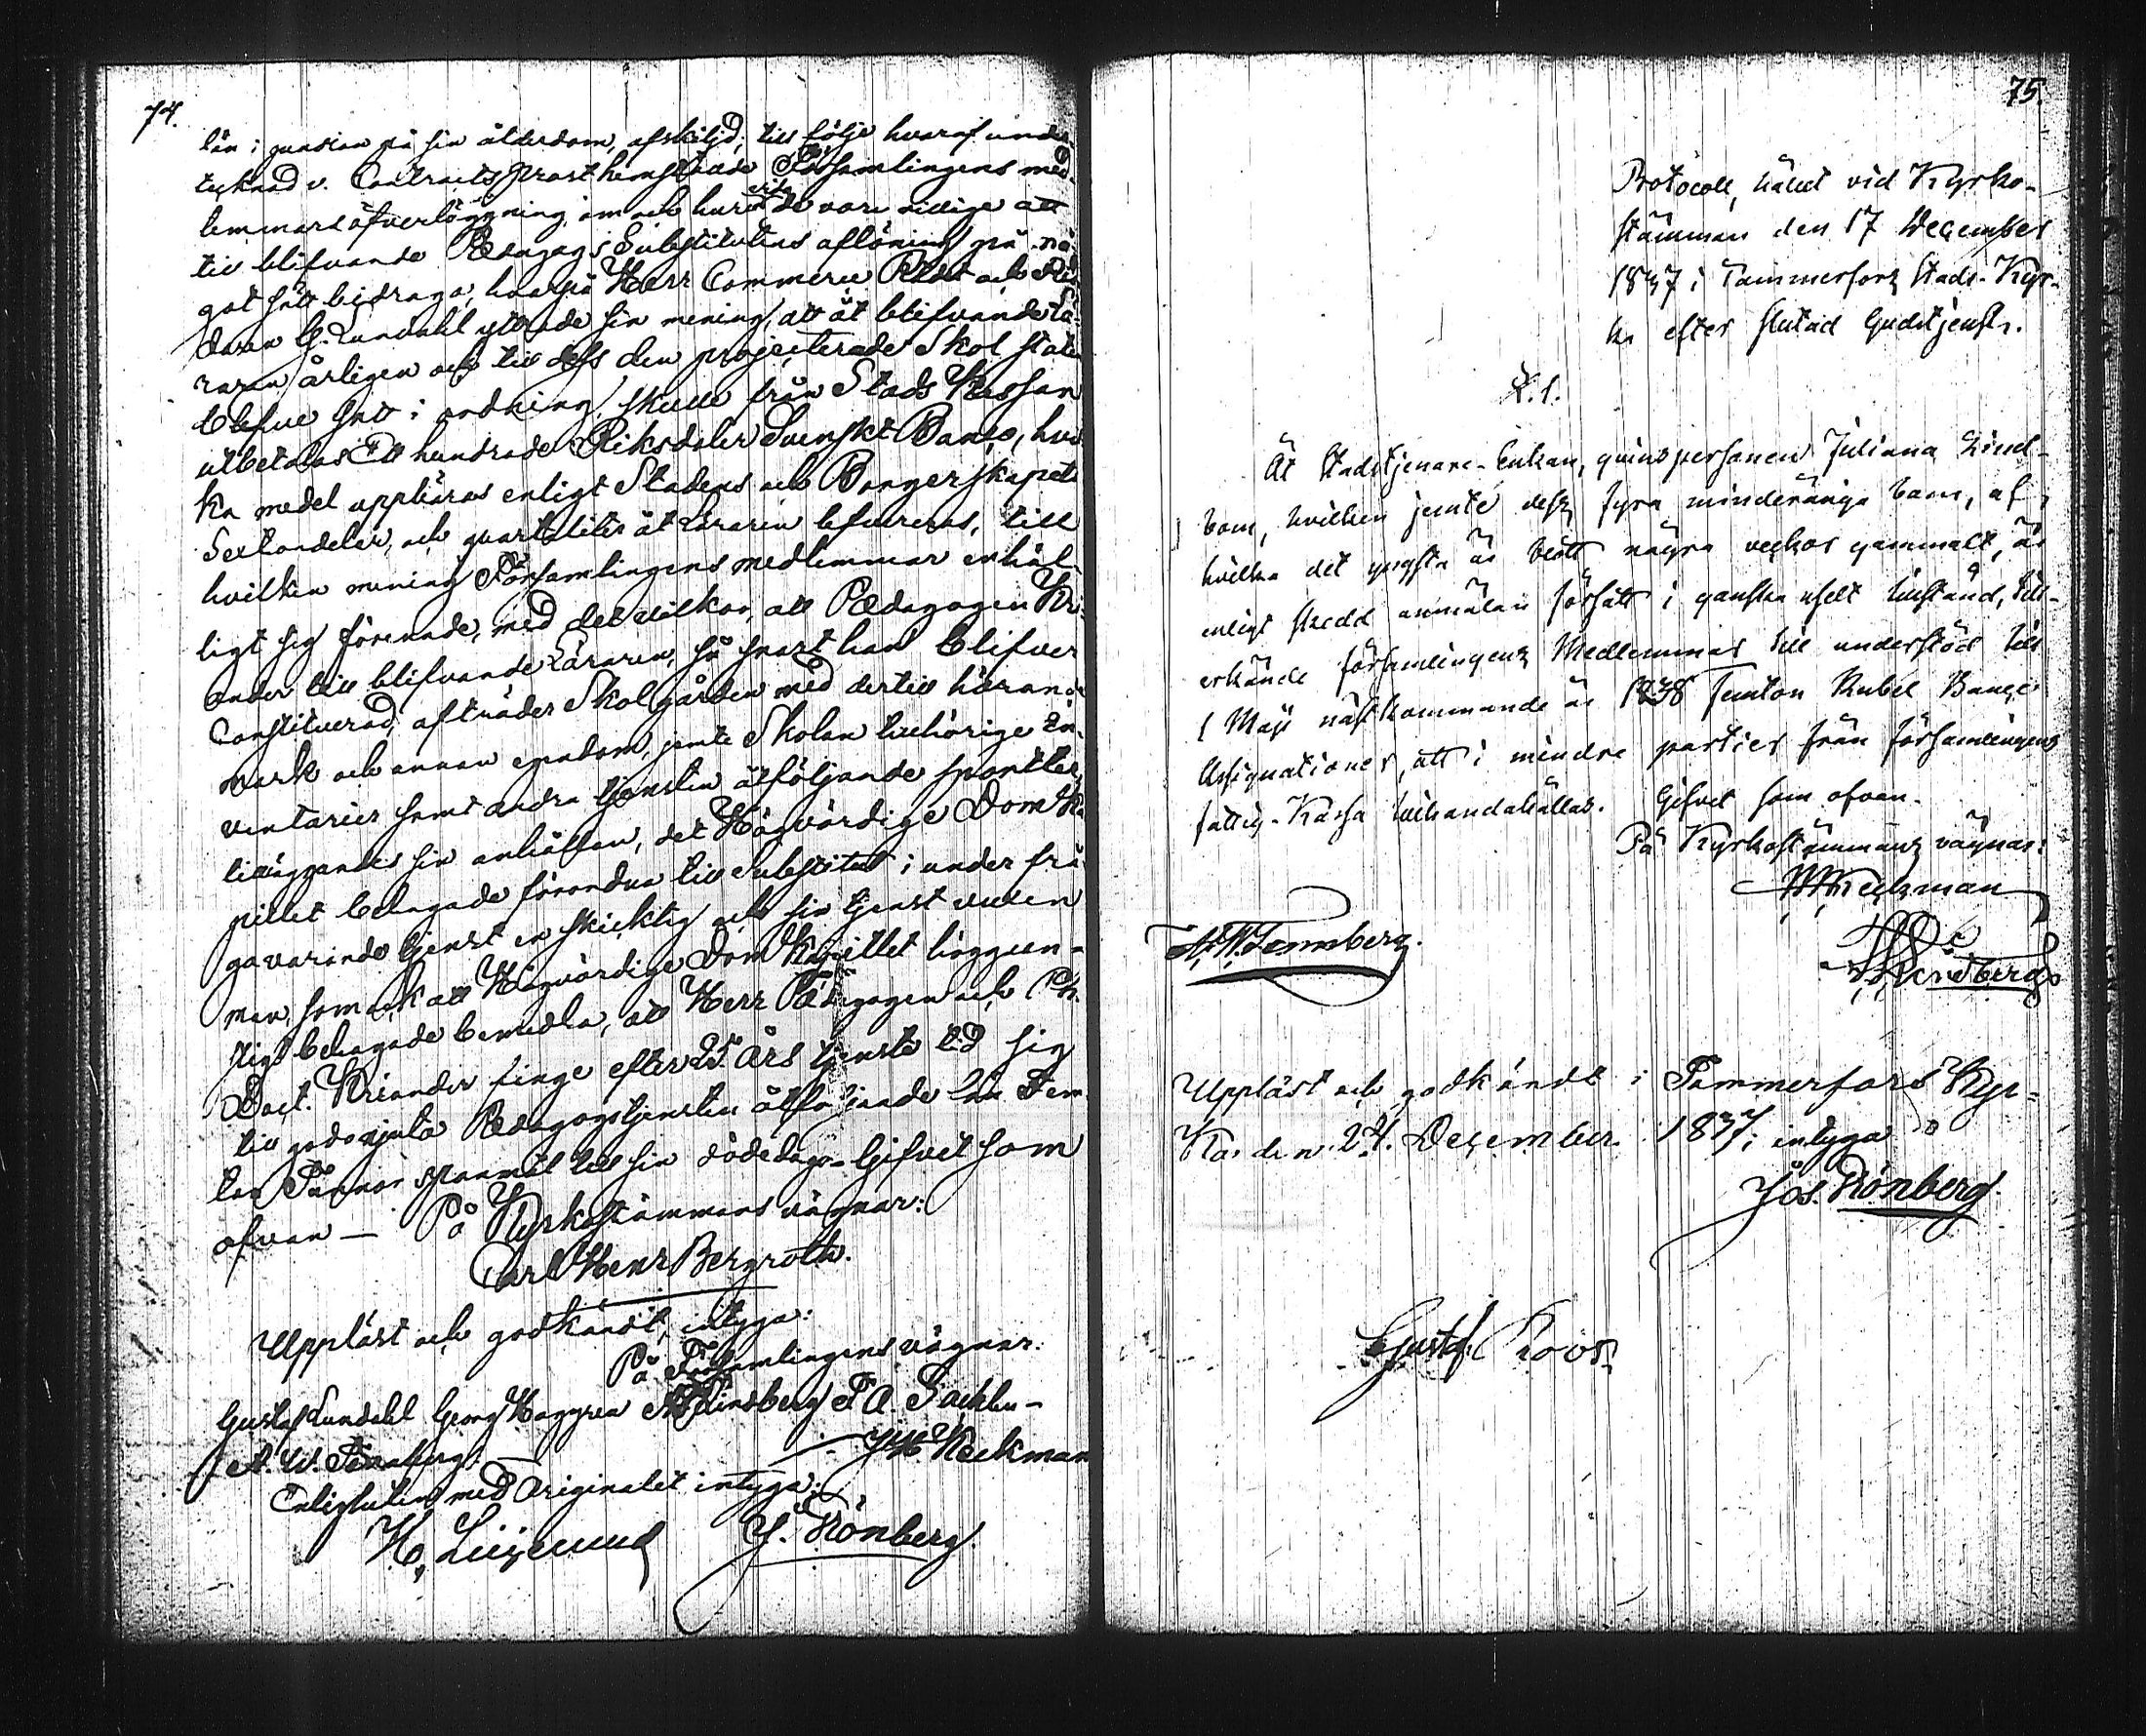 74.
lön i pension på sin ålderdom, afskiljd; till följe hvaraf under-
tecknad v. Contracts Prost hemställde Församlingens med-
lemmars öfverläggning, om och huru vida de voro villige att
till blifvande Pædagogs Substitutens aflöning på nå-
got sätt bidraga, hvarpå Herr Commerce Rådet och Rid-
daren G. Lundahl yttrade sin mening, att åt blifvande Lä-
raren årligen och till dess den projecterade Skol staten
blefve satt i ordning, skulle från Stads Kassan
utbetalas Ett hundrade Riksdaler Svenskt Banco, hvil-
ka medel uppbäras enligt Stadens och Borgerskapets
Skattandelar, och qvartaliter åt Läraren lefvereras, till
hvilken mening Församlingens medlemmar enhäl-
ligt sig förenade, med det vilkor, att Pædagogen Kri-
ander till blifvande Läraren, så snart han blifver
Constituerad, afträder Skolgården med dertill hörande
mark och annan egendom, jemte Skolan tillhörige In-
ventarier samt andra tjensten åtföljande sportler,
tilläggandes sin anhållan, det Högvördige Dom Ka-
pitlet behagade förordna till Substitut i under frå-
ga varande tjenst en skicklig och sin tjenst vuxen
man, som ock att Högvördige Dom Kapitlet höggun-
stigt behagade bemedla, att Herr Pædagogen och Ph.
Doct. Kriander finge efter 25 Års tjenste tid sig
till godo njuta Pædagogstjensten åtföljande lön Fem-
ton Tunnor Spannmål till sin dödedag. Gifvet som
ofvan — På Kyrkostämmans vägnar:
Carl Henr Bergroth.
Uppläst och godkändt, intyga:
På Församlingens vägnar:
Gustaf Lundahl Georg Haggren Lindberg F A. Sacklen
A. W. Tennberg. Heckman
Enligheten med Originalet intyga:
H. Liljelund J. Grönberg.
75.
Protocoll, hållit vid Kyrko-
stämman den 17 December
1837 i Tammerfors Stads-Kyr-
ka efter slutad Gudstjenst.
§. 1.
Åt Stadstjenare-Enkan, qvinspersonen Juliana Lind-
bom, hvilken jemte dess fyra minderåriga barn, af
hvilka det yngsta är blott några veckor gammalt, är
enligt skedd anmälan försatt i ganska uselt tillstånd, till-
erkände församlingens Medlemmar till understöd till
1 Maji nästkommande år 1838 Femton Rubel Banco
Assignationer, att i mindre partier från församlingens
fattig-Kassa tillhandahållas. Gifvet som ofvan.
På Kyrkostämmans vägnar:
Heckman
A. W. Tennberg.
Lindberg
Uppläst och godkändt i Tammerfors Kyr-
ka, den 24. December 1837; intyga
Jos. Grönberg.
Gustaf Roos.